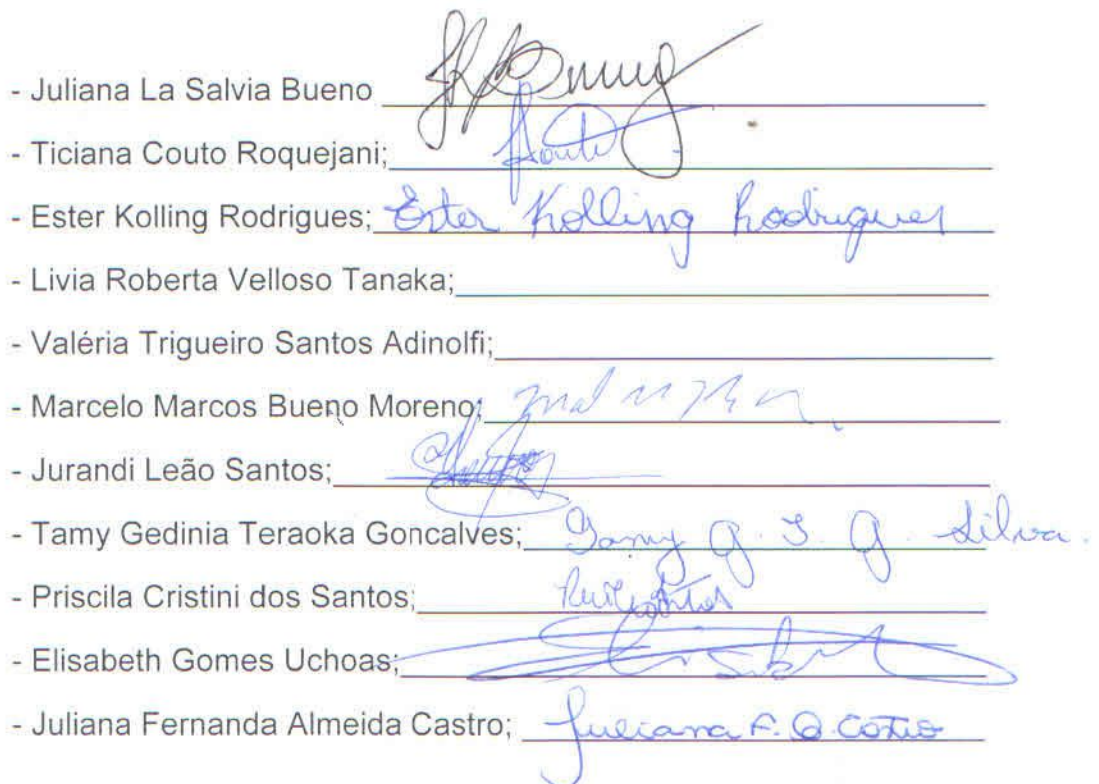 - Juliana La Salvia Bueno
- Ticiana Couto Roquejani; Couto
- Ester Kolling Rodrigues; Ester Kolling Rodrigues
- Livia Roberta Velloso Tanaka;
- Valéria Trigueiro Santos Adinolfi;
- Marcelo Marcos Bueno Moreno;
- Jurandi Leão Santos;
- Tamy Gedinia Teraoka Goncalves; Tamy G. T. G. Silva.
- Priscila Cristini dos Santos;
- Elisabeth Gomes Uchoas;
- Juliana Fernanda Almeida Castro; Juliana F. A. Castro